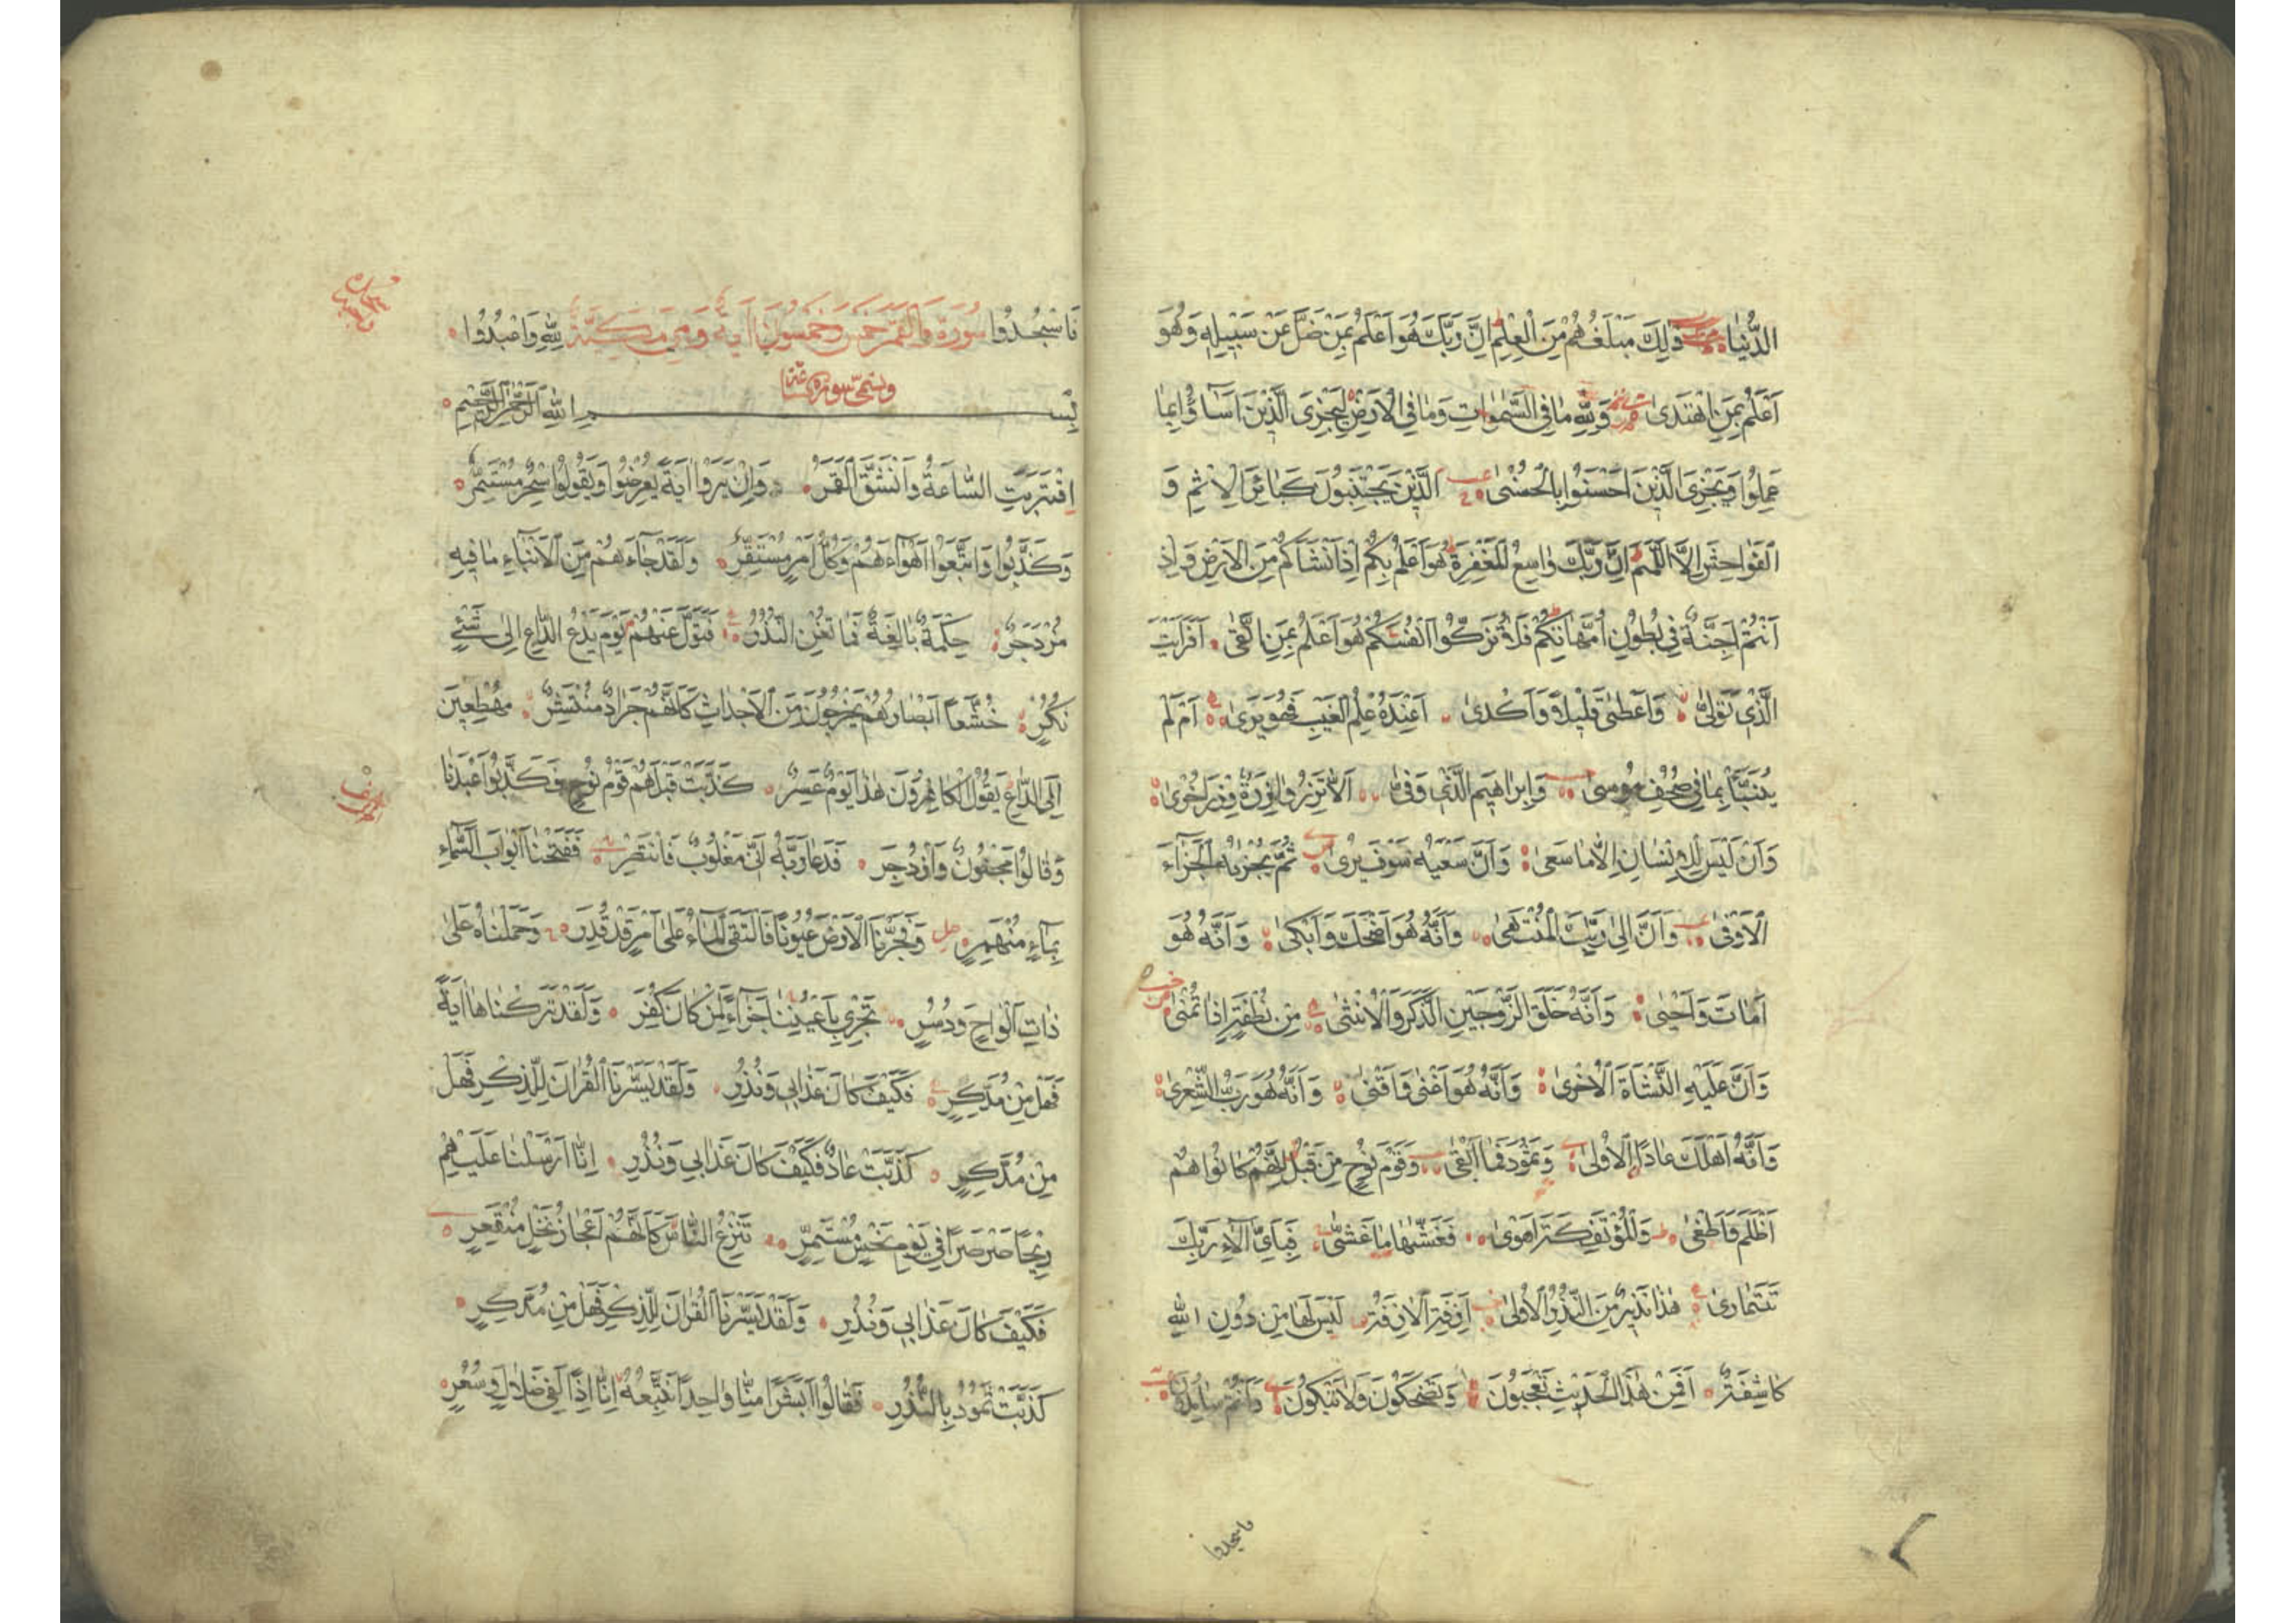 الدُّنْيَا ذٰلِكَ مَبْلَغُهُمْ مِنَ الْعِلْمِ اِنَّ رَبَّكَ هُوَ اَعْلَمُ بِمَنْ ضَلَّ عَنْ سَبِيلِهِ وَهُوَ
اَعْلَمُ بِمَنِ اهْتَدٰى وَلِلّٰهِ مَا فِي السَّمٰوَاتِ وَمَا فِي الْاَرْضِ لِيَجْزِيَ الَّذِينَ اَسَاؤُا بِمَا
عَمِلُوا وَيَجْزِيَ الَّذِينَ اَحْسَنُوا بِالْحُسْنٰى الَّذِينَ يَجْتَنِبُونَ كَبَائِرَ الْاِثْمِ وَ
الْفَوَاحِشَ اِلَّا اللَّمَمَ اِنَّ رَبَّكَ وَاسِعُ الْمَغْفِرَةِ هُوَ اَعْلَمُ بِكُمْ اِذْ اَنْشَاَكُمْ مِنَ الْاَرْضِ وَاِذْ
اَنْتُمْ اَجِنَّةٌ فِي بُطُونِ اُمَّهَاتِكُمْ فَلَا تُزَكُّوا اَنْفُسَكُمْ هُوَ اَعْلَمُ بِمَنِ اتَّقٰى اَفَرَاَيْتَ
الَّذِي تَوَلّٰى وَاَعْطٰى قَلِيلًا وَاَكْدٰى اَعِنْدَهُ عِلْمُ الْغَيْبِ فَهُوَ يَرٰى اَمْ لَمْ
يُنَبَّأْ بِمَا فِي صُحُفِ مُوسٰى وَاِبْرَاهِيمَ الَّذِي وَفّٰى اَلَّا تَزِرُ وَازِرَةٌ وِزْرَ اُخْرٰى
وَاَنْ لَيْسَ لِلْاِنْسَانِ اِلَّا مَا سَعٰى وَاَنَّ سَعْيَهُ سَوْفَ يُرٰى ثُمَّ يُجْزٰيهُ الْجَزَاءَ
الْاَوْفٰى وَاَنَّ اِلٰى رَبِّكَ الْمُنْتَهٰى وَاَنَّهُ هُوَ اَضْحَكَ وَاَبْكٰى وَاَنَّهُ هُوَ
اَمَاتَ وَاَحْيٰى وَاَنَّهُ خَلَقَ الزَّوْجَيْنِ الذَّكَرَ وَالْاُنْثٰى مِنْ نُطْفَةٍ اِذَا تُمْنٰى
وَاَنَّ عَلَيْهِ النَّشْاَةَ الْاُخْرٰى وَاَنَّهُ هُوَ اَغْنٰى وَاَقْنٰى وَاَنَّهُ هُوَ رَبُّ الشِّعْرٰى
وَاَنَّهُ اَهْلَكَ عَادًا الْاُولٰى وَثَمُودَ فَمَا اَبْقٰى وَقَوْمَ نُوحٍ مِنْ قَبْلُ اِنَّهُمْ كَانُوا هُمْ
اَظْلَمَ وَاَطْغٰى وَالْمُؤْتَفِكَةَ اَهْوٰى فَغَشّٰيهَا مَا غَشّٰى فَبِاَيِّ اٰلَاءِ رَبِّكَ
تَتَمَارٰى هٰذَا نَذِيرٌ مِنَ النُّذُرِ الْاُولٰى اَزِفَتِ الْاٰزِفَةُ لَيْسَ لَهَا مِنْ دُونِ اللّٰهِ
كَاشِفَةٌ اَفَمِنْ هٰذَا الْحَدِيثِ تَعْجَبُونَ وَتَضْحَكُونَ وَلَا تَبْكُونَ وَاَنْتُمْ سَامِدُونَ
فاسجدوا
فَاسْجُدُوا سُورَةُ وَالْقَمَرِ خَمْسٌ وَخَمْسُونَ اٰيَةً وَهِيَ مَكِّيَّةٌ لِلّٰهِ وَاعْبُدُوا
بِسْمِ اللّٰهِ الرَّحْمٰنِ الرَّحِيمِ
اِقْتَرَبَتِ السَّاعَةُ وَانْشَقَّ الْقَمَرُ وَاِنْ يَرَوْا اٰيَةً يُعْرِضُوا وَيَقُولُوا سِحْرٌ مُسْتَمِرٌّ
وَكَذَّبُوا وَاتَّبَعُوا اَهْوَاءَهُمْ وَكُلُّ اَمْرٍ مُسْتَقِرٌّ وَلَقَدْ جَاءَهُمْ مِنَ الْاَنْبَاءِ مَا فِيهِ
مُزْدَجَرٌ حِكْمَةٌ بَالِغَةٌ فَمَا تُغْنِ النُّذُرُ فَتَوَلَّ عَنْهُمْ يَوْمَ يَدْعُ الدَّاعِ اِلٰى شَيْءٍ
نُكُرٍ خُشَّعًا اَبْصَارُهُمْ يَخْرُجُونَ مِنَ الْاَجْدَاثِ كَاَنَّهُمْ جَرَادٌ مُنْتَشِرٌ مُهْطِعِينَ
اِلَى الدَّاعِ يَقُولُ الْكَافِرُونَ هٰذَا يَوْمٌ عَسِرٌ كَذَّبَتْ قَبْلَهُمْ قَوْمُ نُوحٍ فَكَذَّبُوا عَبْدَنَا
وَقَالُوا مَجْنُونٌ وَازْدُجِرَ فَدَعَا رَبَّهُ اَنِّي مَغْلُوبٌ فَانْتَصِرْ فَفَتَحْنَا اَبْوَابَ السَّمَاءِ
بِمَاءٍ مُنْهَمِرٍ وَفَجَّرْنَا الْاَرْضَ عُيُونًا فَالْتَقَى الْمَاءُ عَلٰى اَمْرٍ قَدْ قُدِرَ وَحَمَلْنَاهُ عَلٰى
ذَاتِ اَلْوَاحٍ وَدُسُرٍ تَجْرِي بِاَعْيُنِنَا جَزَاءً لِمَنْ كَانَ كُفِرَ وَلَقَدْ تَرَكْنَاهَا اٰيَةً
فَهَلْ مِنْ مُدَّكِرٍ فَكَيْفَ كَانَ عَذَابِي وَنُذُرِ وَلَقَدْ يَسَّرْنَا الْقُرْاٰنَ لِلذِّكْرِ فَهَلْ
مِنْ مُدَّكِرٍ كَذَّبَتْ عَادٌ فَكَيْفَ كَانَ عَذَابِي وَنُذُرِ اِنَّا اَرْسَلْنَا عَلَيْهِمْ
رِيحًا صَرْصَرًا فِي يَوْمِ نَحْسٍ مُسْتَمِرٍّ تَنْزِعُ النَّاسَ كَاَنَّهُمْ اَعْجَازُ نَخْلٍ مُنْقَعِرٍ
فَكَيْفَ كَانَ عَذَابِي وَنُذُرِ وَلَقَدْ يَسَّرْنَا الْقُرْاٰنَ لِلذِّكْرِ فَهَلْ مِنْ مُدَّكِرٍ
كَذَّبَتْ ثَمُودُ بِالنُّذُرِ فَقَالُوا اَبَشَرًا مِنَّا وَاحِدًا نَتَّبِعُهُ اِنَّا اِذًا لَفِي ضَلَالٍ وَسُعُرٍ